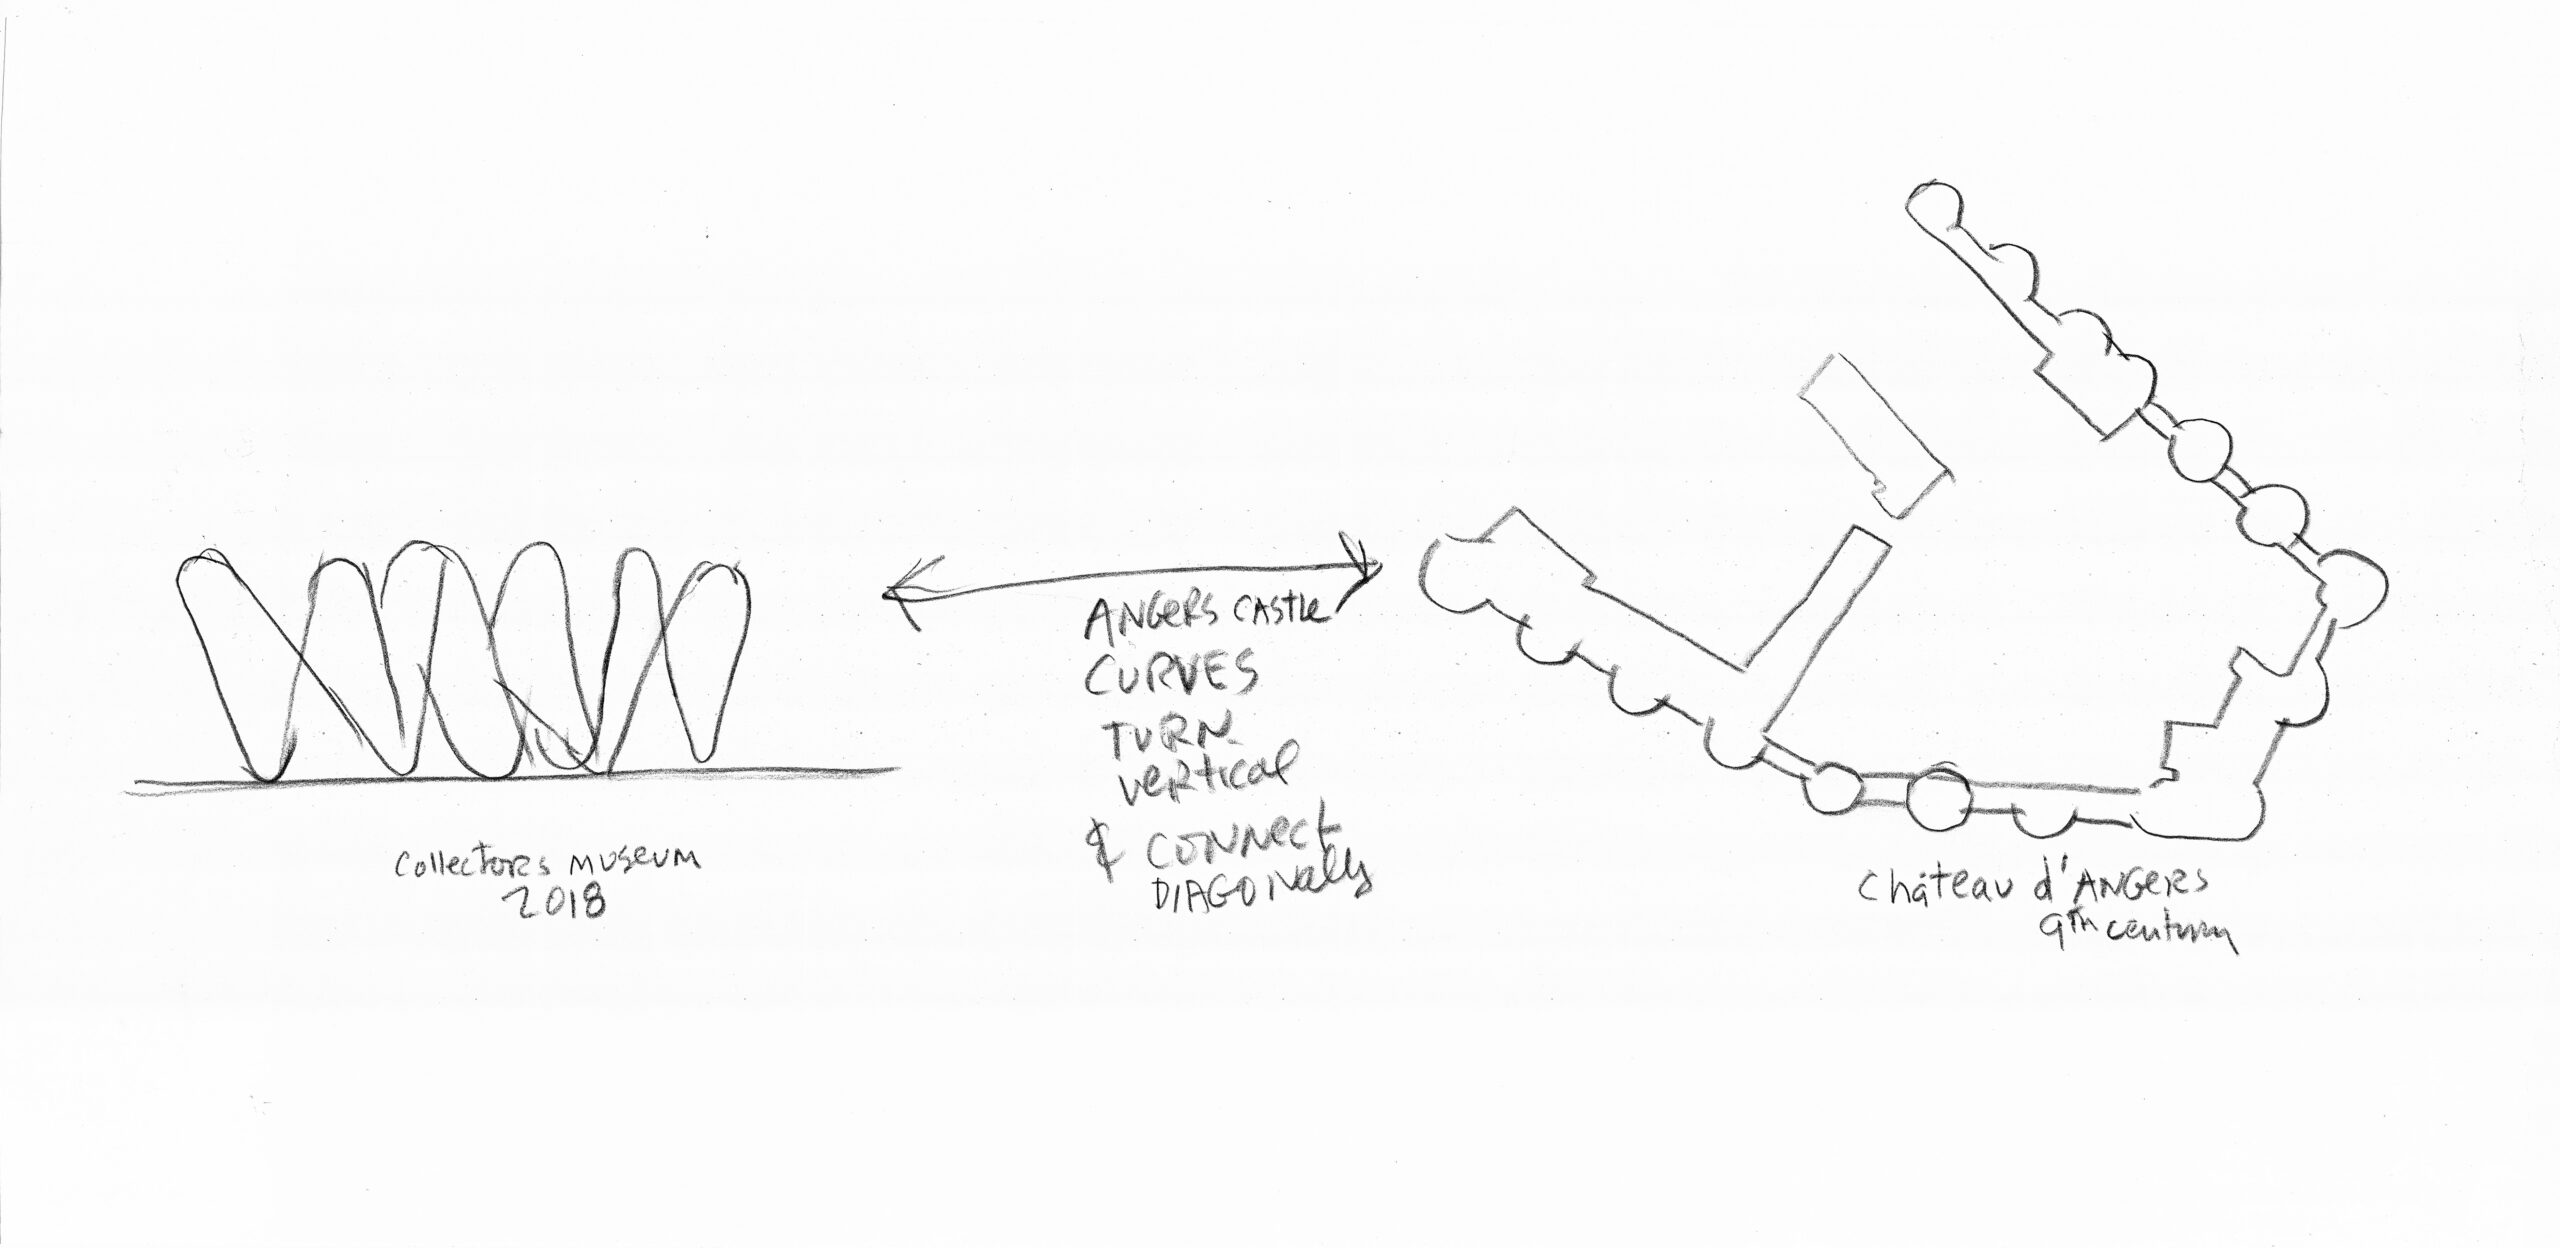 Collectors museum
2018
ANGERS CASTLE
CURVES
TURN
vertical
& CONNECT
DIAGONALLY
Château d'ANGERS
9th century